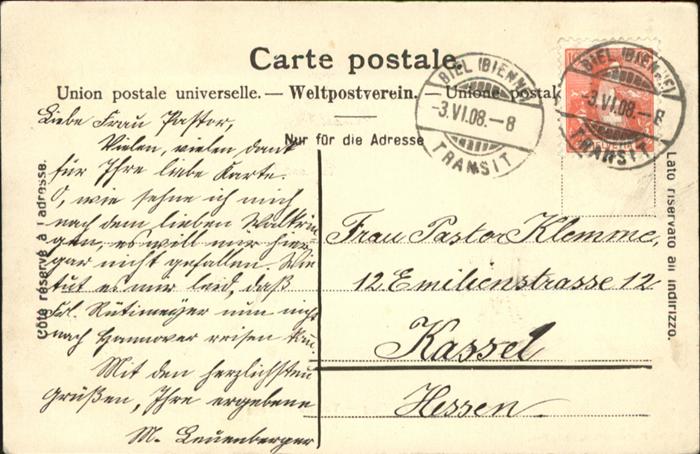 Carte postale.
Union postale universelle. — Weltpostverein. — Unione postal
Nur für die Adresse
Côté réservé à l'adresse.
Lato riservato all indirizzo.
BIEL (BIENNE)
-3.VI.08.-8
TRANSIT
BIEL (BIENNE)
-3.VI.08.-8
TRANSIT
HELVETIA
Liebe Frau Pastor,
Vielen, vielen Dank
für Ihre liebe Karte.
O, wie sehne ich mich
nach dem lieben Walkrin-
gen, es will mir hier
gar nicht gefallen. Wie
tut es mir leid, daß
Frl. Rütimeyer nun nicht
nach Hannover reisen kann
Mit den herzlichsten
Grüßen, Ihre ergebene
M. Leuenberger
Frau Pastor Klemme,
12 Emilienstrasse 12
Kassel
Hessen.